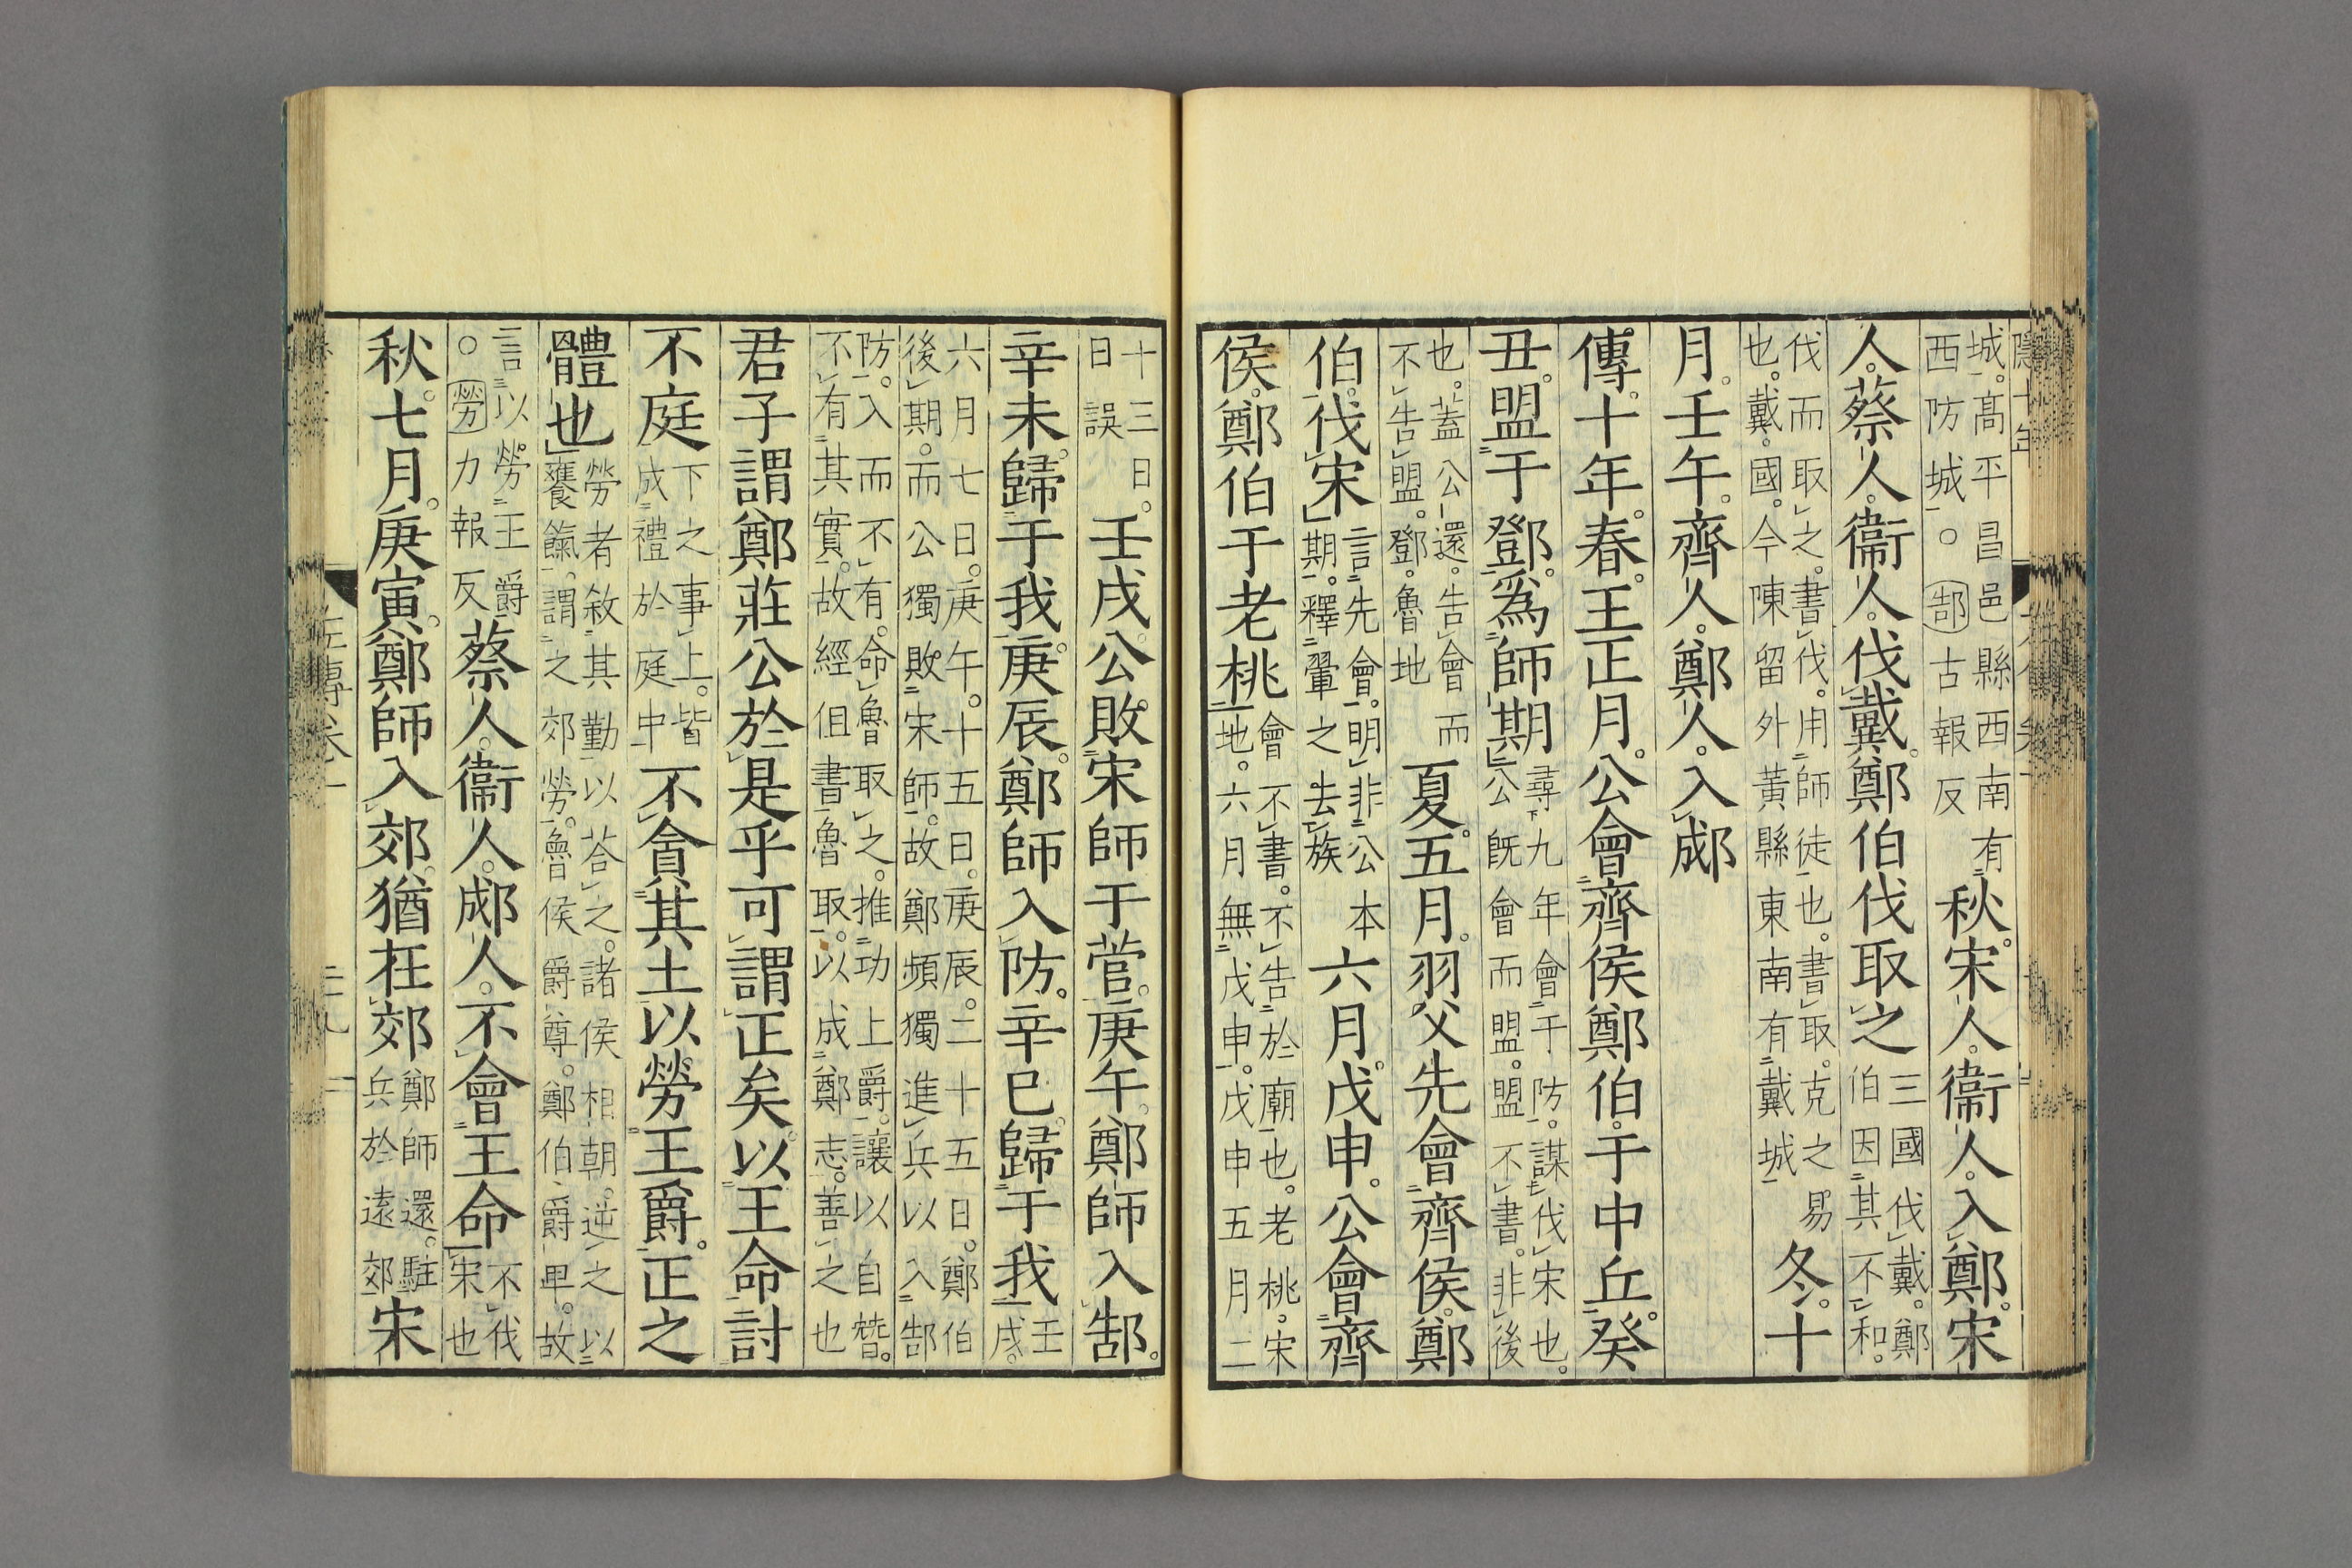 城。高平昌邑縣西南有西防城○郜古報反秋。宋人。衞人。入鄭。宋
人。蔡人。衞人。伐戴。鄭伯伐取之三國伐戴。鄭伯因其不和。
伐而取之。書伐。用師徒也。書取。克之易也。戴。國。今陳留外黃縣東南有戴城冬。十
月。壬午。齊人。鄭人。入郕
傳。十年。春。王正月。公會齊侯鄭伯。于中丘。癸
丑。盟于鄧。爲師期尋九年會于防。謀伐宋也。公旣會而盟。盟不書。非後
也。蓋公還。告會而不告盟。鄧。魯地夏。五月。羽父先會齊侯。鄭
伯。伐宋言先會。明非公本期。釋翬之去族六月。戊申。公會齊
侯。鄭伯于老桃會不書。不告於廟也。老桃。宋地。六月無戊申。戊申五月二
十三日。日誤壬戌。公敗宋師于菅。庚午。鄭師入郜。
辛未。歸于我。庚辰。鄭師入防。辛巳。歸于我壬戌。
六月七日。庚午。十五日。庚辰。二十五日。鄭伯後期。而公獨敗宋師。故鄭頻獨進兵以入郜
防。入而不有。命魯取之。推功上爵。讓以自替。不有其實。故經但書魯取。以成鄭志。善之也
君子謂鄭莊公於是乎可謂正矣。以王命討
不庭下之事上。皆成禮於庭中不貪其土以勞王爵。正之
體也勞者敘其勤以荅之。諸侯相朝。逆之以饔餼。謂之郊勞。魯侯爵尊。鄭伯爵卑。故
言以勞王爵○勞力報反蔡人。衞人。郕人。不會王命不伐宋也
秋。七月。庚寅。鄭師入郊。猶在郊鄭師還。駐兵於遠郊宋
左傳卷一